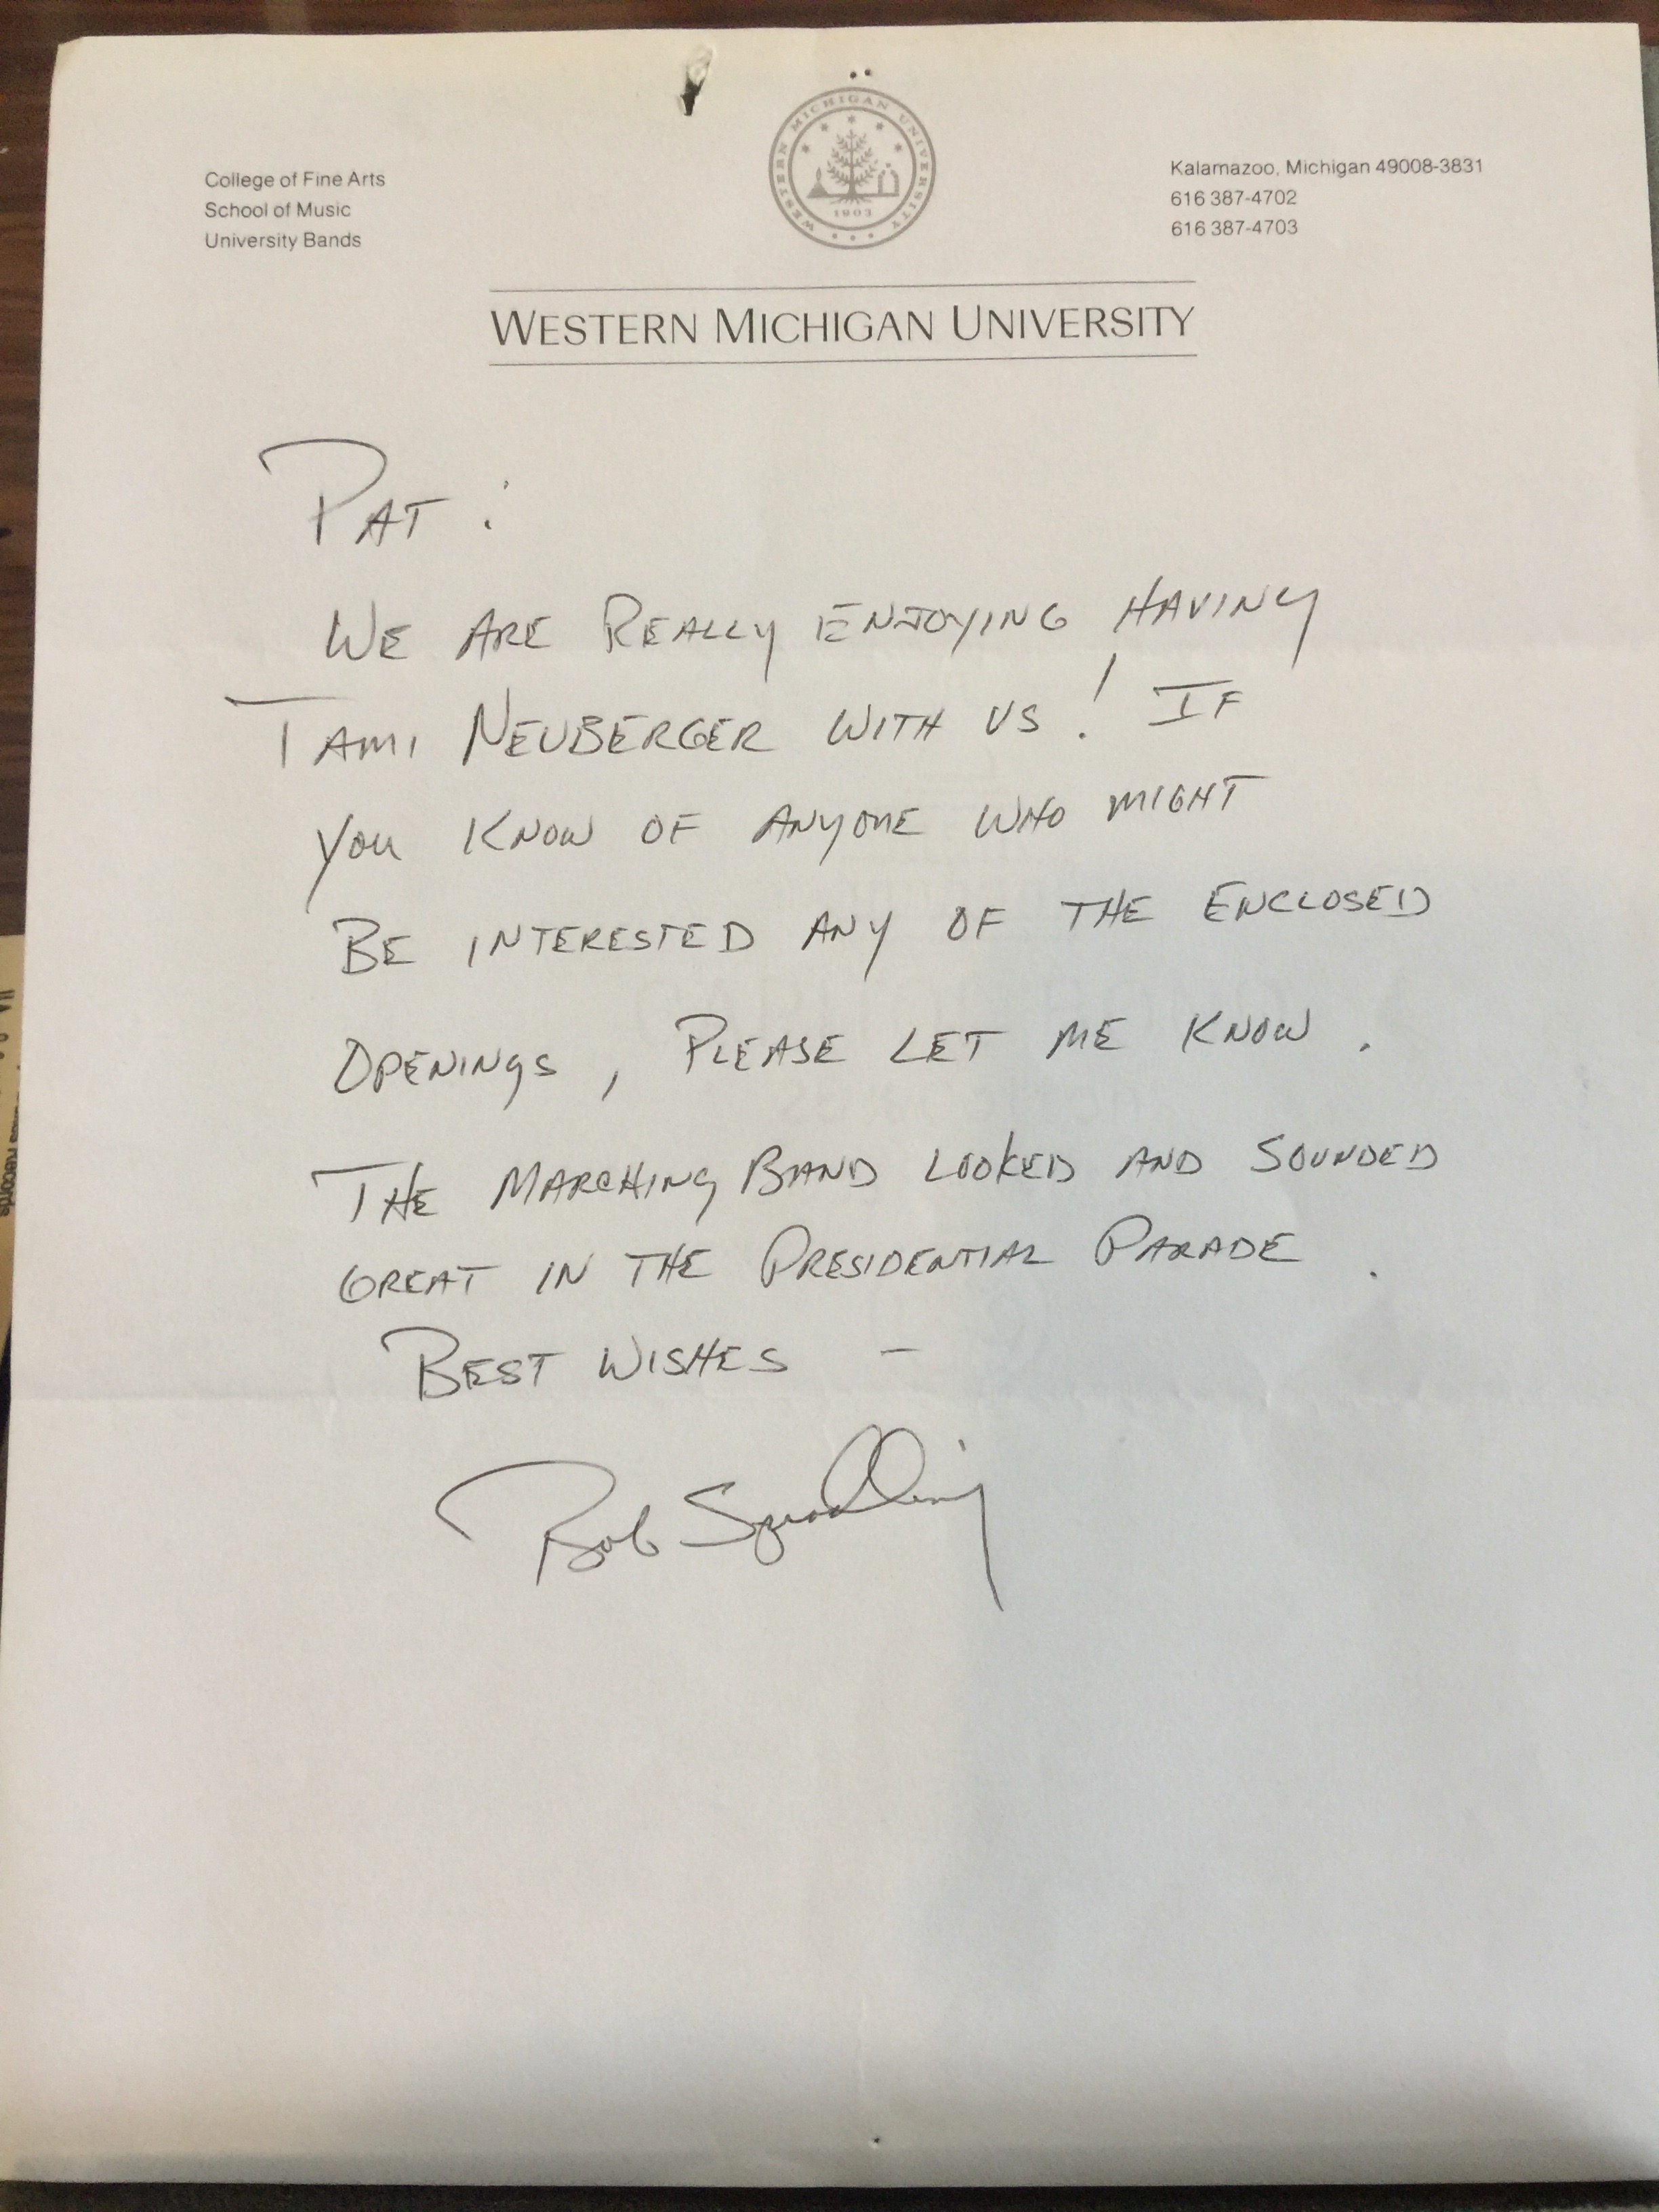 College of Fine Arts
School of Music
University Bands
WESTERN MICHIGAN UNIVERSITY
1903
Kalamazoo, Michigan 49008-3831
616 387-4702
616 387-4703
WESTERN MICHIGAN UNIVERSITY
PAT :
WE ARE REALLY ENJOYING HAVING
TAMI NEUBERGER WITH US! IF
YOU KNOW OF ANYONE WHO MIGHT
BE INTERESTED ANY OF THE ENCLOSED
OPENINGS, PLEASE LET ME KNOW.
THE MARCHING BAND LOOKED AND SOUNDED
GREAT IN THE PRESIDENTIAL PARADE.
BEST WISHES –
Bob Spradling